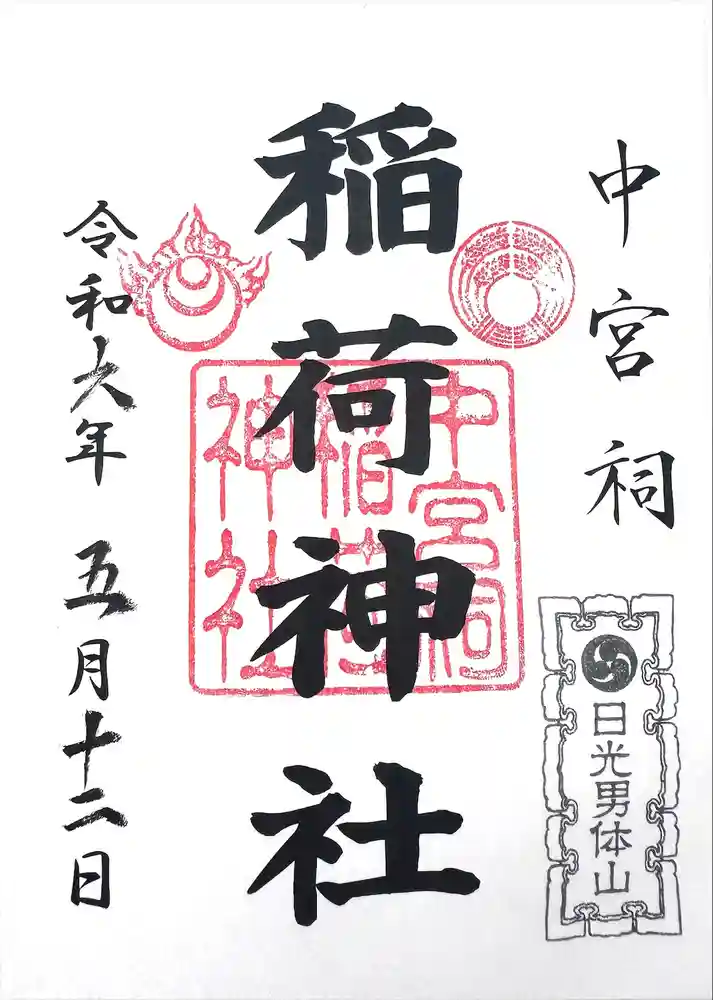 中宮祠
日光男体山
稲荷神社
中宮祠
稲荷
神社
令和六年 五月十二日